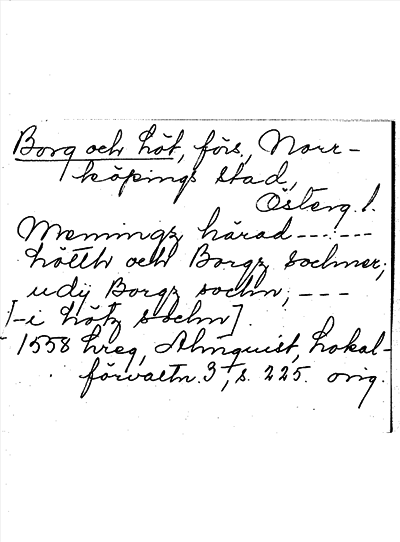 Borg och Löt, förs., Norr-
köpings stad,
Österg. l.
Memmingz härad ---:---
Lötth och Borgz sochner;
udj Borgz sochn, ---
[-i Lötz sochn]
1558 Lreg, Almquist, Lokal-
förvaltn. 3, s. 225. orig.